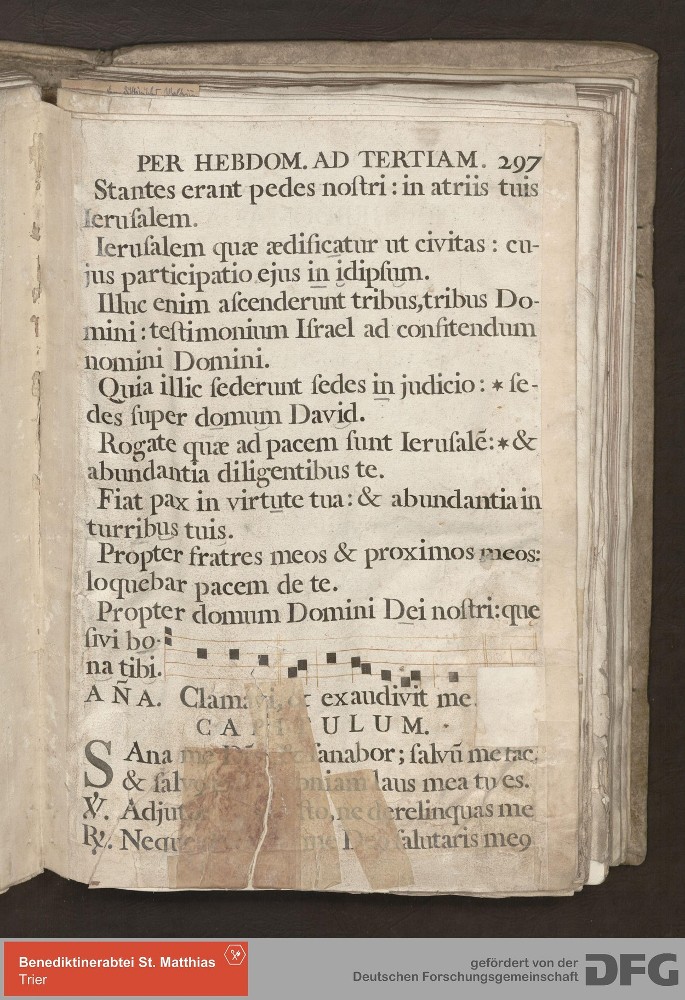 PER HEBDOM. AD TERTIAM. 297
Stantes erant pedes noſtri : in atriis tuis
Ieruſalem.
Ieruſalem quæ ædificatur ut civitas : cu-
jus participatio ejus in idipſum.
Illuc enim aſcenderunt tribus, tribus Do-
mini : teſtimonium Iſrael ad confitendum
nomini Domini.
Quia illic ſederunt ſedes in judicio : * ſe-
des ſuper domum David.
Rogate quæ ad pacem ſunt Ieruſalē: * &
abundantia diligentibus te.
Fiat pax in virtute tua : & abundantia in
turribus tuis.
Propter fratres meos & proximos meos:
loquebar pacem de te.
Propter domum Domini Dei noſtri: que
ſivi bo-
na tibi.
AÑA. exaudivit me.
CAPITULUM.
SAna me & ſanabor; ſalvū me fac.
& laus mea tu es.
℣. derelinquas me
℟. ſalutaris meꝰ
Benediktinerabtei St. Matthias
Trier
gefördert von der
Deutschen Forschungsgemeinschaft
DFG